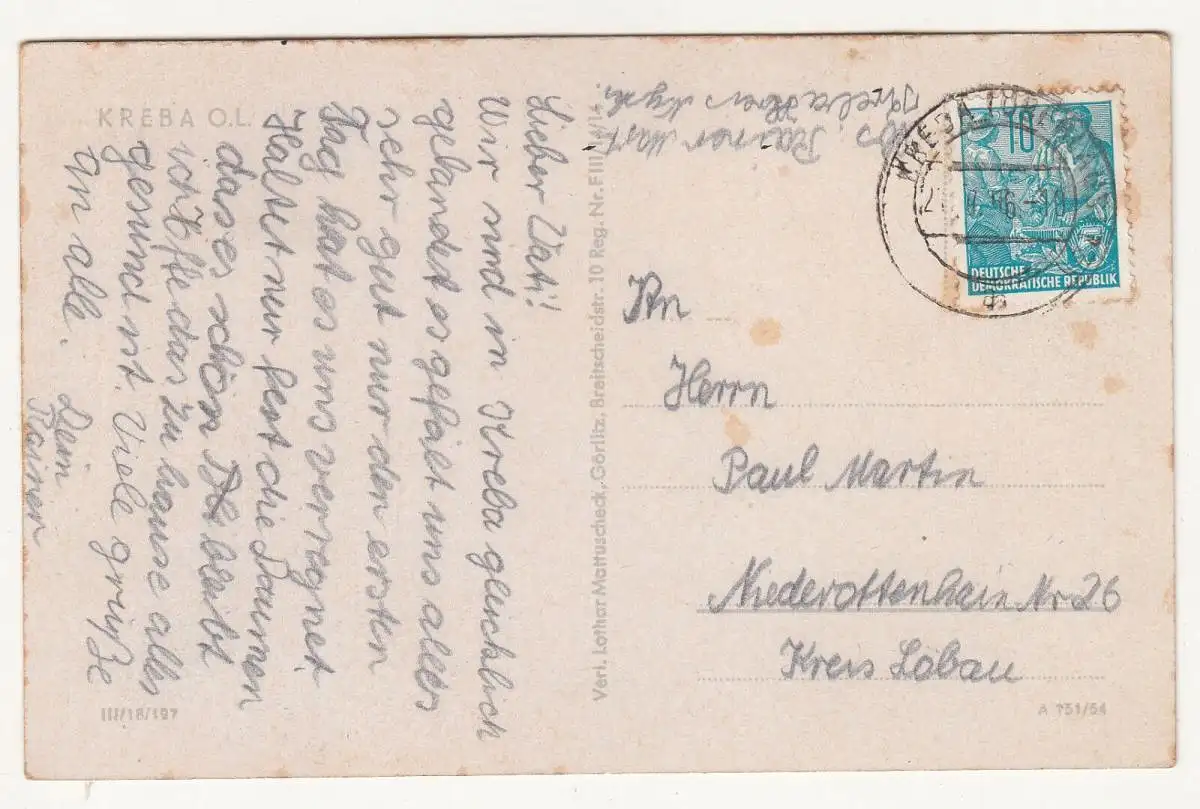 KREBA O.L.
Lieber Vati!
Wir sind in Kreba glücklich
gelandet es gefält uns alles
sehr gut nur den ersten
Tag hat es uns verregnet.
Haltet nur fest die Daumen
dass es schön bleibt
ich hoffe das zu hause alles
gesund ist. Viele grüße
an alle.
Dein
Rainer
III/18/197
Verl. Lothar Mattuscheck, Görlitz, Breitscheidstr. 10 Reg.-Nr. F III
Abs. Rainer
Kreba Kreis
10
DEUTSCHE
DEMOKRATISCHE REPUBLIK
KREBA
An
Herrn
Paul Martin
Niederottenhein Nr 26
Kreis Löbau
A 751/54